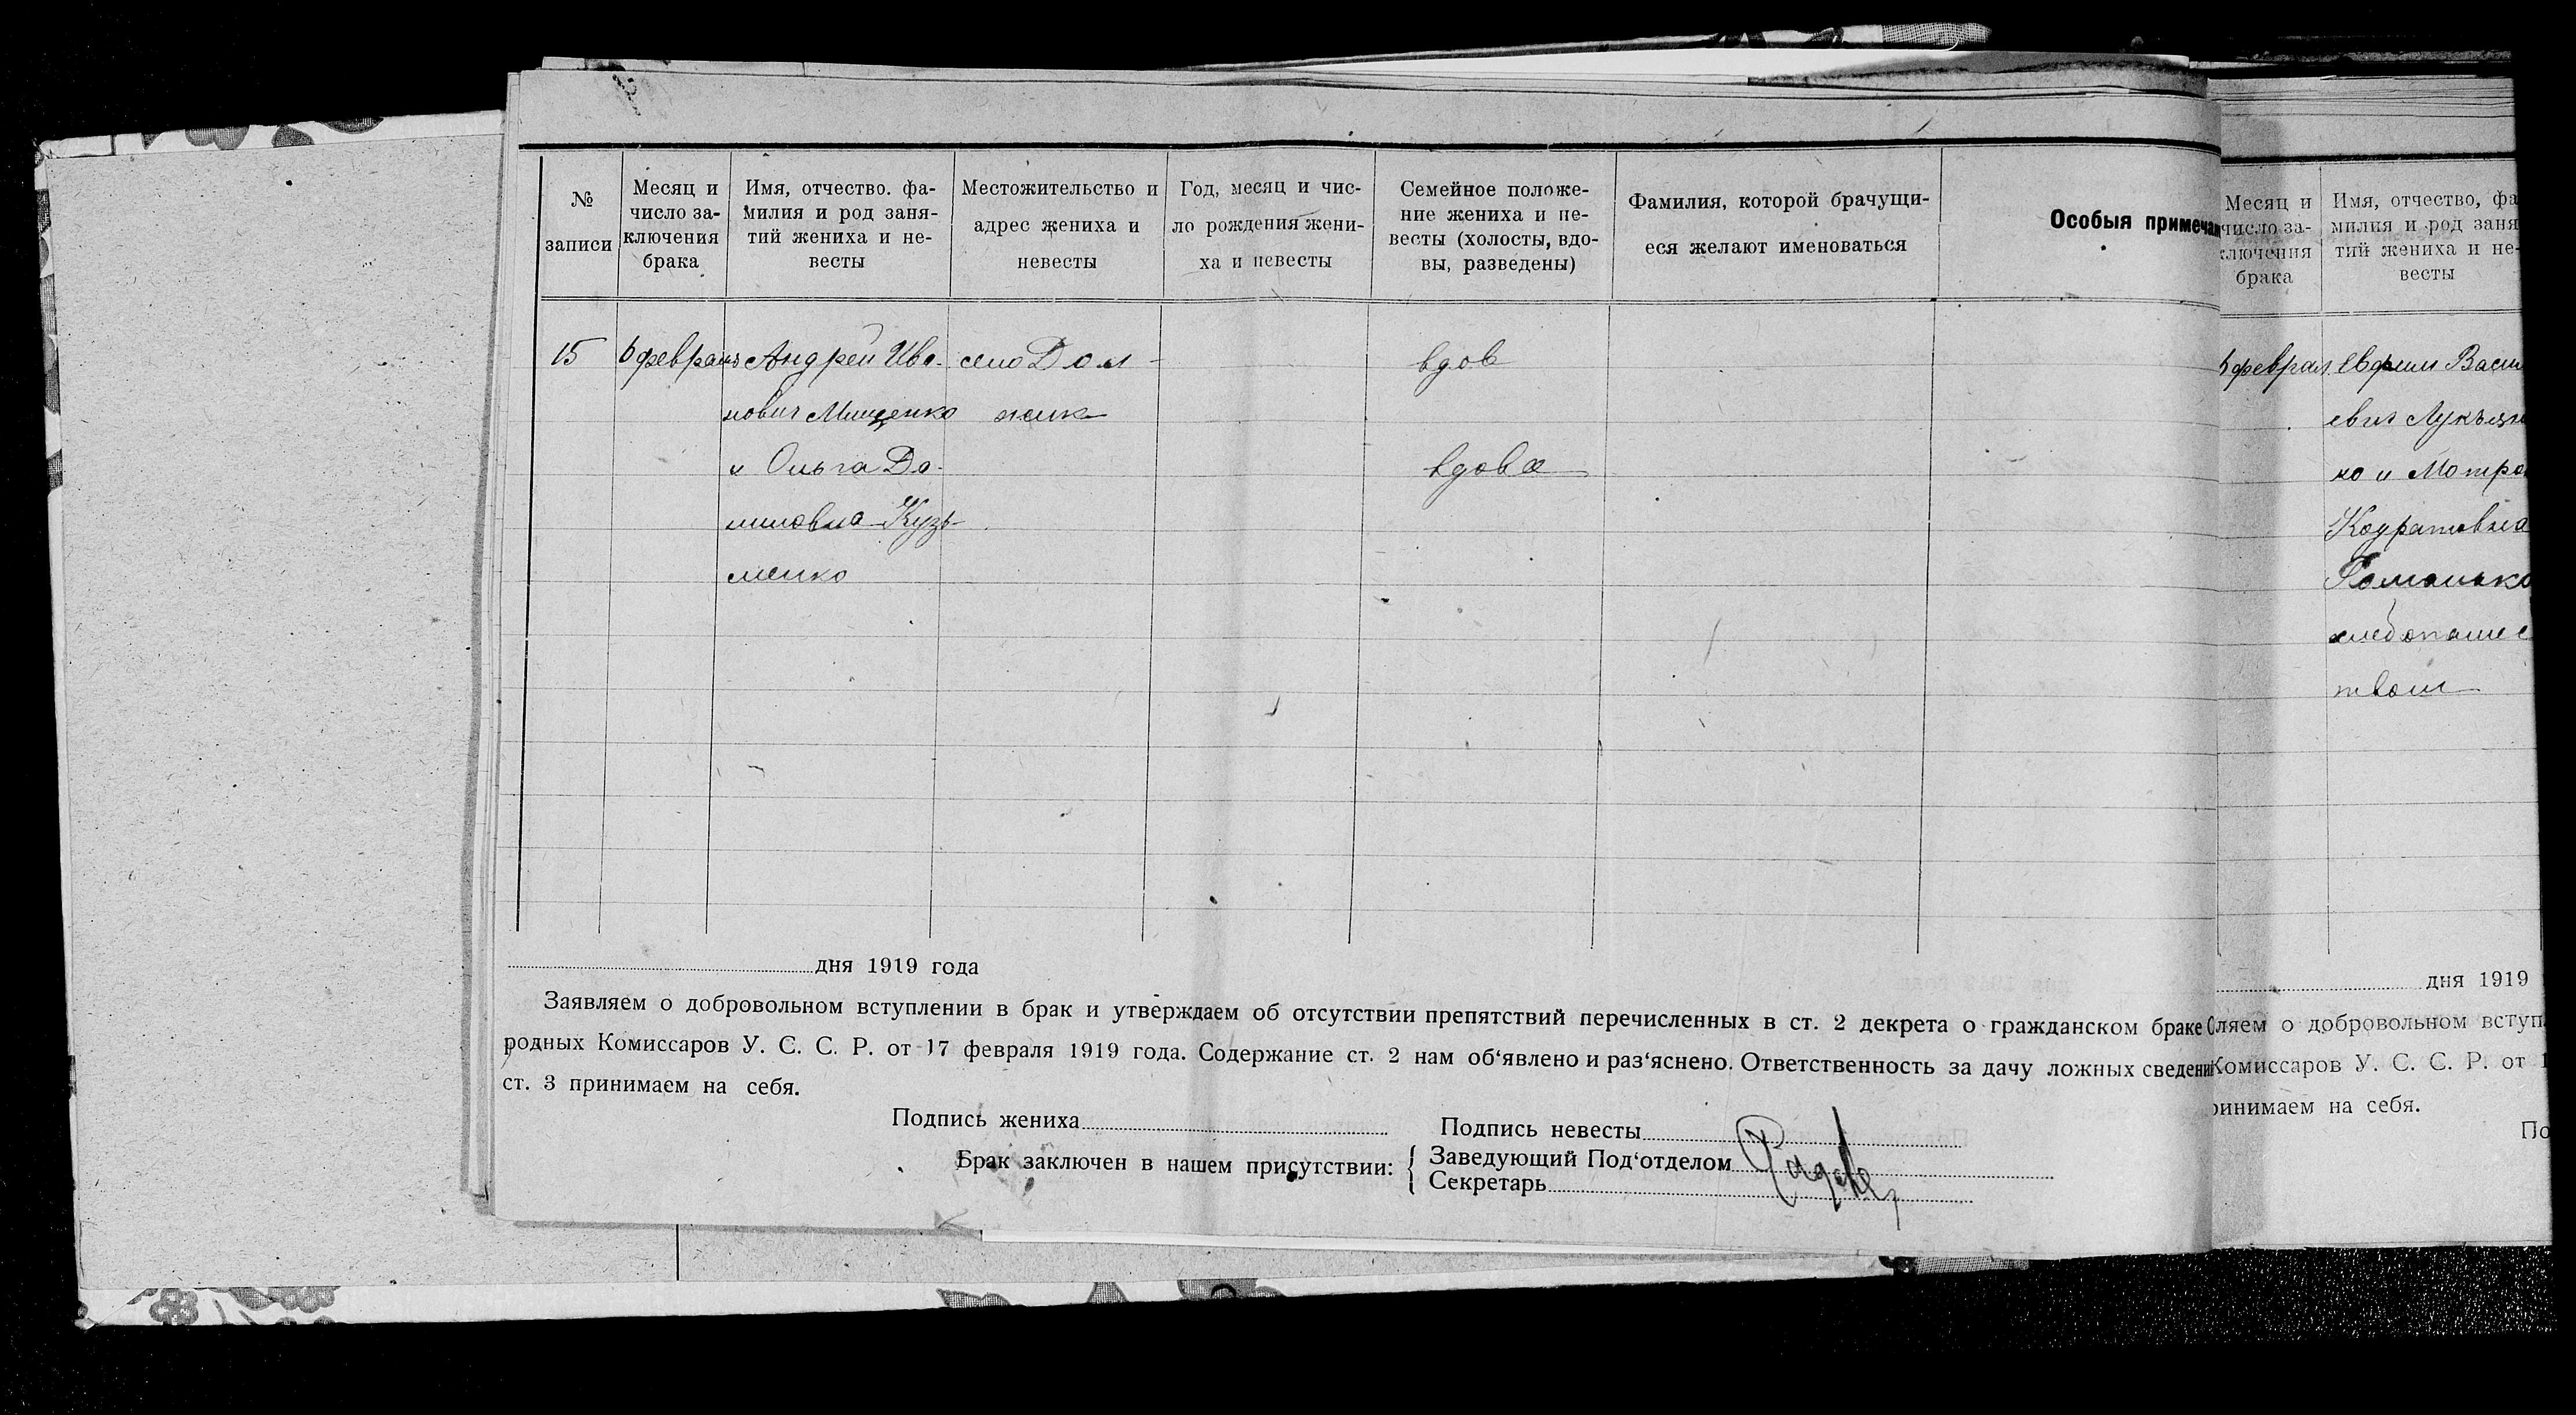 № записи
Месяц и число заключения брака
Имя, отчество. фамилия и род занятий жениха и невесты
Местожительство и адрес жениха и невесты
Год, месяц и число рождения жениха и невесты
Семейное положение жениха и невесты (холосты, вдовы, разведены)
Фамилия, которой брачущиеся желают именоваться
Особыя примечан
15 6 февраль Андрей Ива- село Дол- вдов
нович Мищенко жик
и Ольга Да- вдова
ниловна Кузь-
менко
дня 1919 года
Заявляем о добровольном вступлении в брак и утверждаем об отсутствии препятствий перечисленных в ст. 2 декрета о гражданском браке С
родных Комиссаров У. С. С. Р. от 17 февраля 1919 года. Содержание ст. 2 нам об‘явлено и раз‘яснено. Ответственность за дачу ложных сведени
ст. 3 принимаем на себя.
Подпись жениха
Подпись невесты
Брак заключен в нашем присутствии:
Заведующий Под‘отделом
Секретарь
Месяц и
число за-
ключения
брака
Имя, отчество, фа
милия и род заня
тий жениха и не-
весты
6 феврал Евфим Васил
евич Лукъян
ко и Мотро
Кодратовна
Романько
хлебопашес
твом
дня 1919
ляем о добровольном вступ
Комиссаров У. С. С. Р. от 1
ринимаем на себя.
По